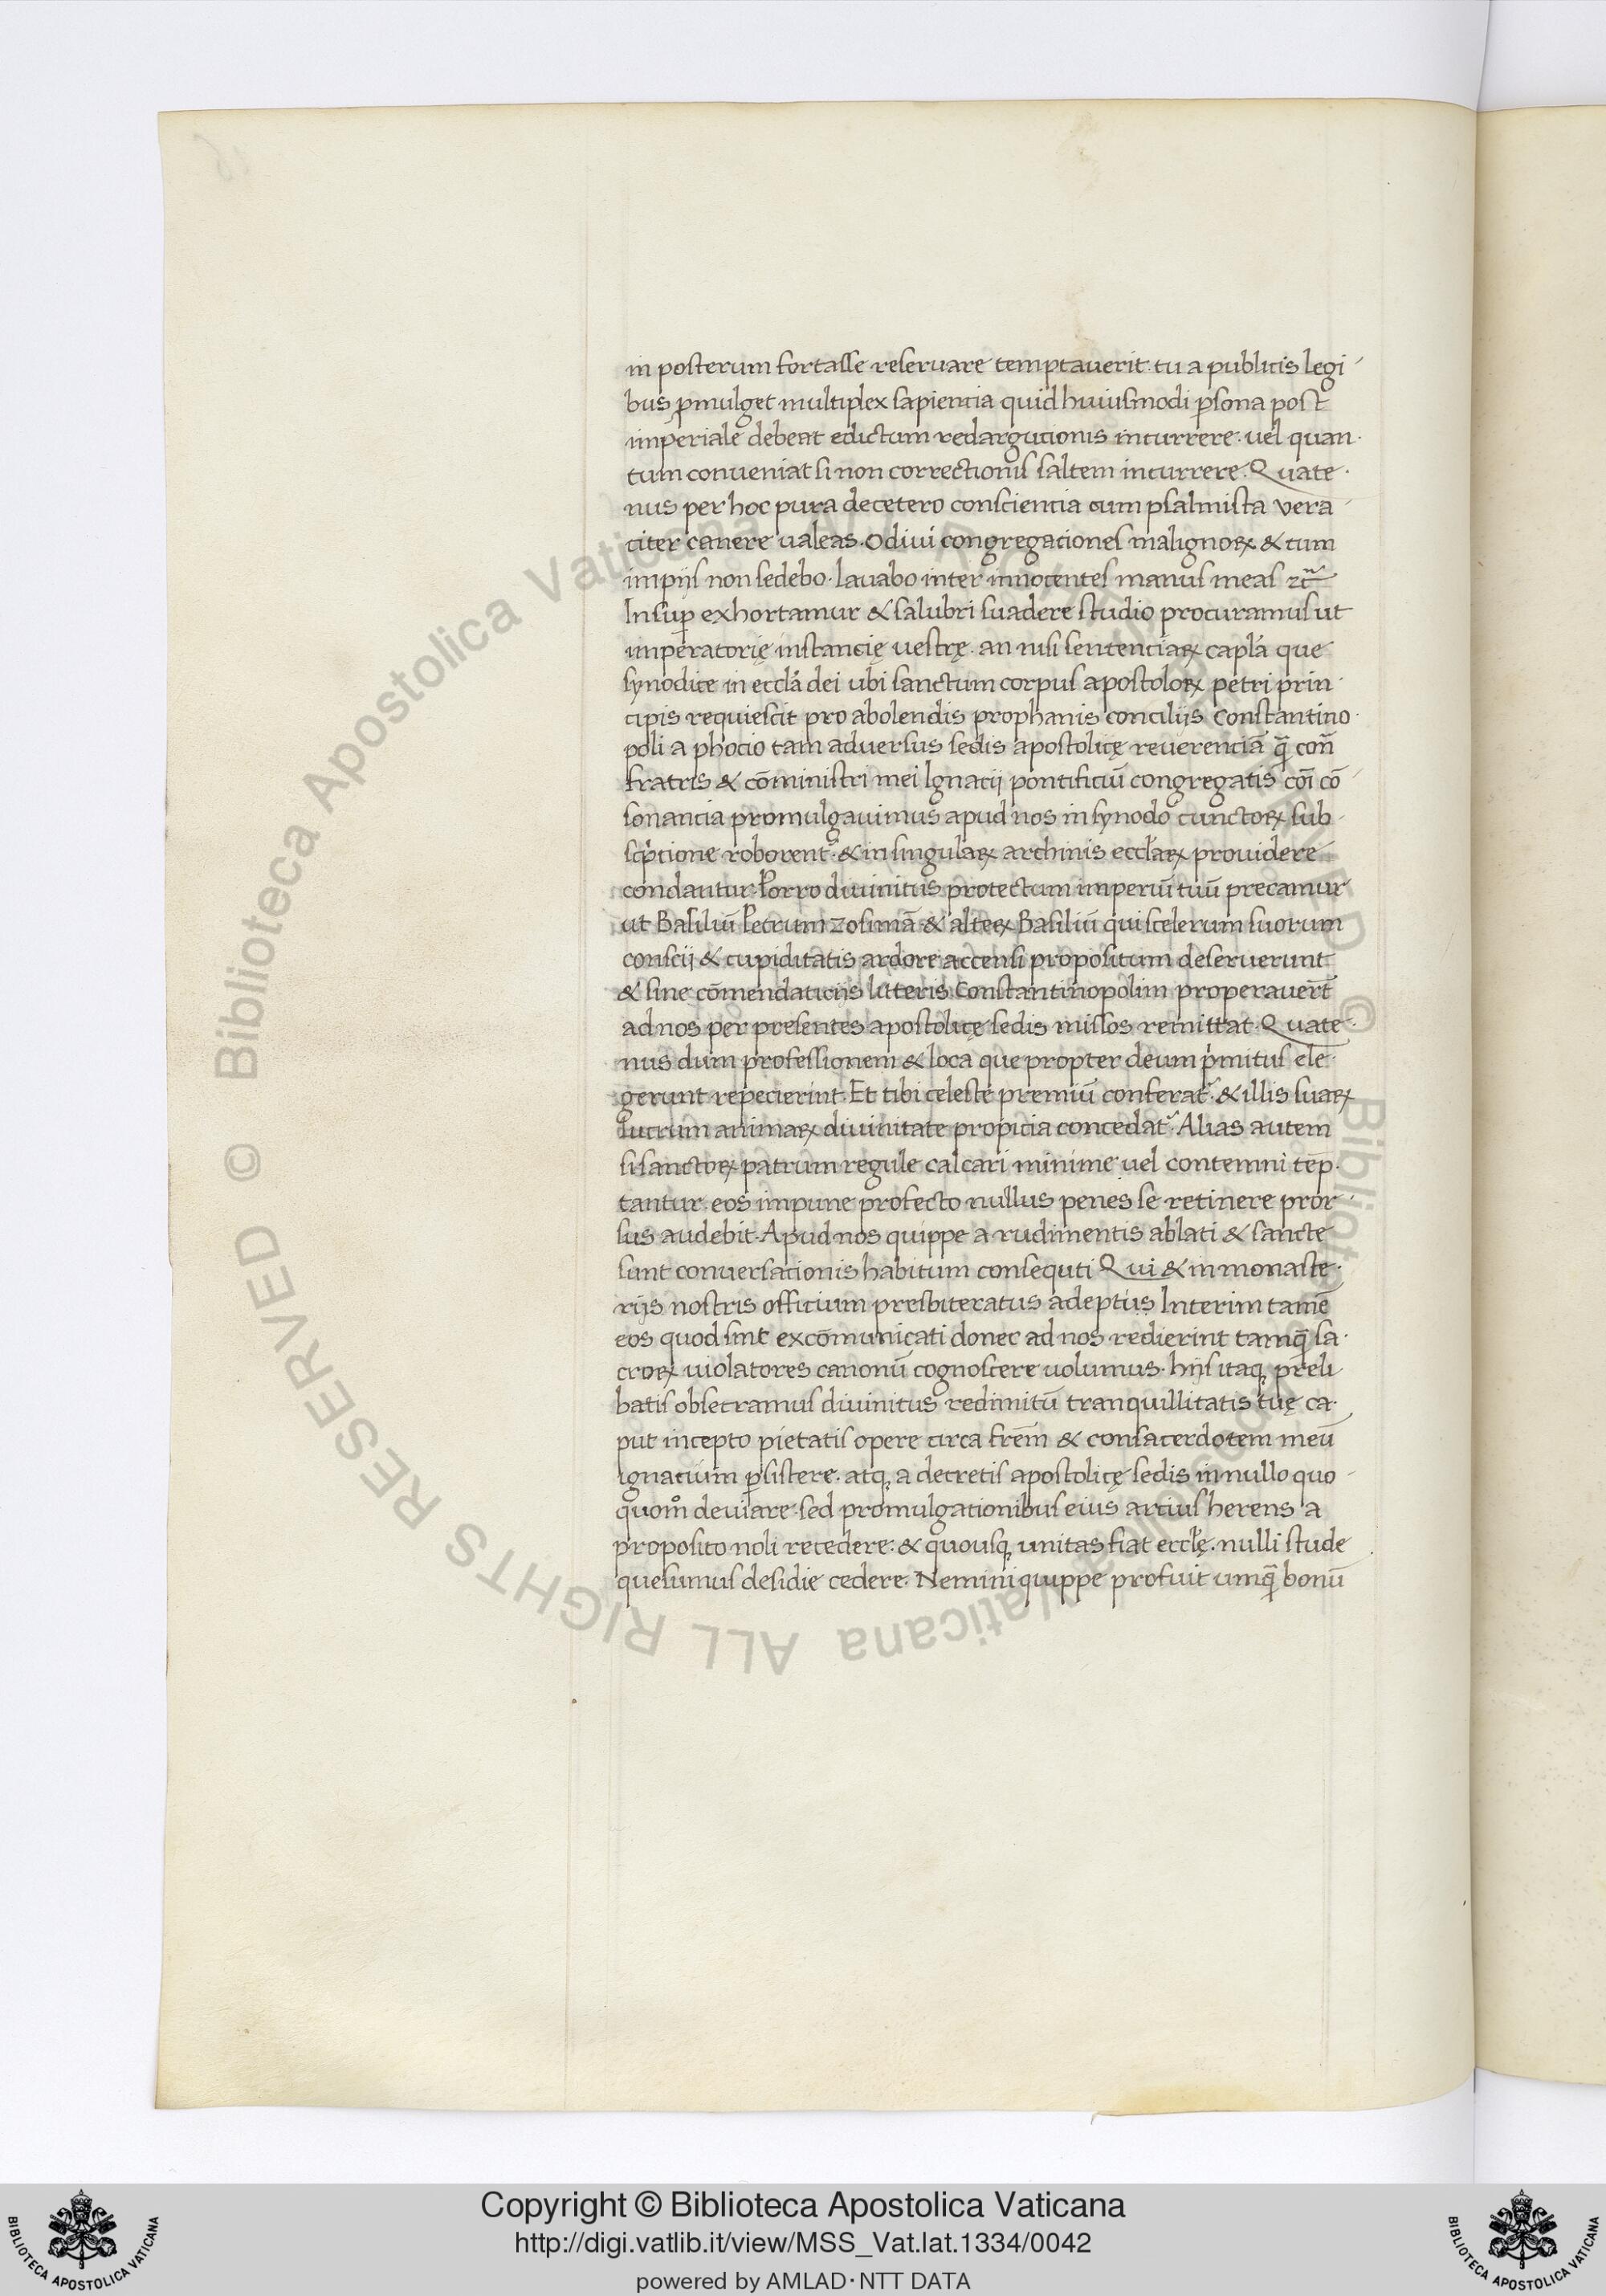 in posterum fortasse reservare temptaverit. tu a publicis legi-
bus ꝓmulget multiplex sapientia quid huiusmodi ꝑsona post
imperiale debeat edictum redargutionis incurrere. vel quan-
tum conveniat si non correctionis saltem incurrere. Quate-
nus per hoc pura decetero conscientia cum psalmista vera-
citer canere valeas. Odivi congregationes malignoꝝ & cum
impiis non sedebo. lavabo inter innocentes manus meas ⁊c̃
Insuꝑ exhortamur & salubri suadere studio procuramus ut
imperatorię instancię vestrę. an nisi sentenciaꝝ capla que
synodice in eccla dei ubi sanctum corpus apostoloꝝ petri prin-
cipis requiescit pro abolendis prophanis conciliis Constantino-
poli a phocio tam adversus sedis apostolicę reverenciā q̄ con̄
fratris & cōministri mei Ignacij pontificiū congregatis cōi cō-
sonancia promulgavimus apud nos in synodo cunctoꝝ sub-
scptione roborent᷑. & in singulaꝝ archinis ecclaꝝ providere
condantur. Porro divinitus protectum imperiū tuū precamur
ut Basiliū Petrum Zosimā & alteꝝ Basiliū qui scelerum suorum
conscij & cupiditatis ardore accensi propositum deseruerunt
& sine cōmendaticijs litteris Constantinopolim properavert̄
ad nos per presentes apostolicę sedis missos remittat. Quate-
nus dum professionem & loca que propter deum pmitus ele-
gerunt repecierint. Et tibi celeste premiū conferat᷑. & illis suaꝝ
lucrum animaꝝ divinitate propicia concedat᷑. Alias autem
si sanctoꝝ patrum regule calcari minime vel contemni tēp-
tantur. eos impune profecto nullus penes se retinere pror-
sus audebit. Apud nos quippe a rudimentis ablati & sancte
sunt conversationis habitum consequti Qui & in monaste-
rijs nostris officium presbiteratus adeptus Interim tamē
eos quod sint excōmunicati donec ad nos redierint tamq̄ sa-
croꝝ violatores canonū cognoscere volumus. hijs itaq; preli
batis obsecramus divinitus redimitū tranquillitatis tuę ca-
put incepto pietatis opere circa frēm & consacerdotem meū
ignatium ꝑsistere. atq; a decretis apostolicę sedis in nullo quo-
quomͦ deviare. sed promulgationibus eius artius herens a
proposito noli recedere: & quousq; unitas fiat ecclę. nulli stude
quesumus desidie cedere. Nemini quippe profuit umq̄ bonū
Copyright © Biblioteca Apostolica Vaticana
http://digi.vatlib.it/view/MSS_Vat.lat.1334/0042
powered by AMLAD·NTT DATA
BIBLIOTECA APOSTOLICA VATICANA
BIBLIOTECA APOSTOLICA VATICANA
© Biblioteca Apostolica Vaticana ALL RIGHTS RESERVED © Biblioteca Apostolica Vaticana ALL RIGHTS RESERVED